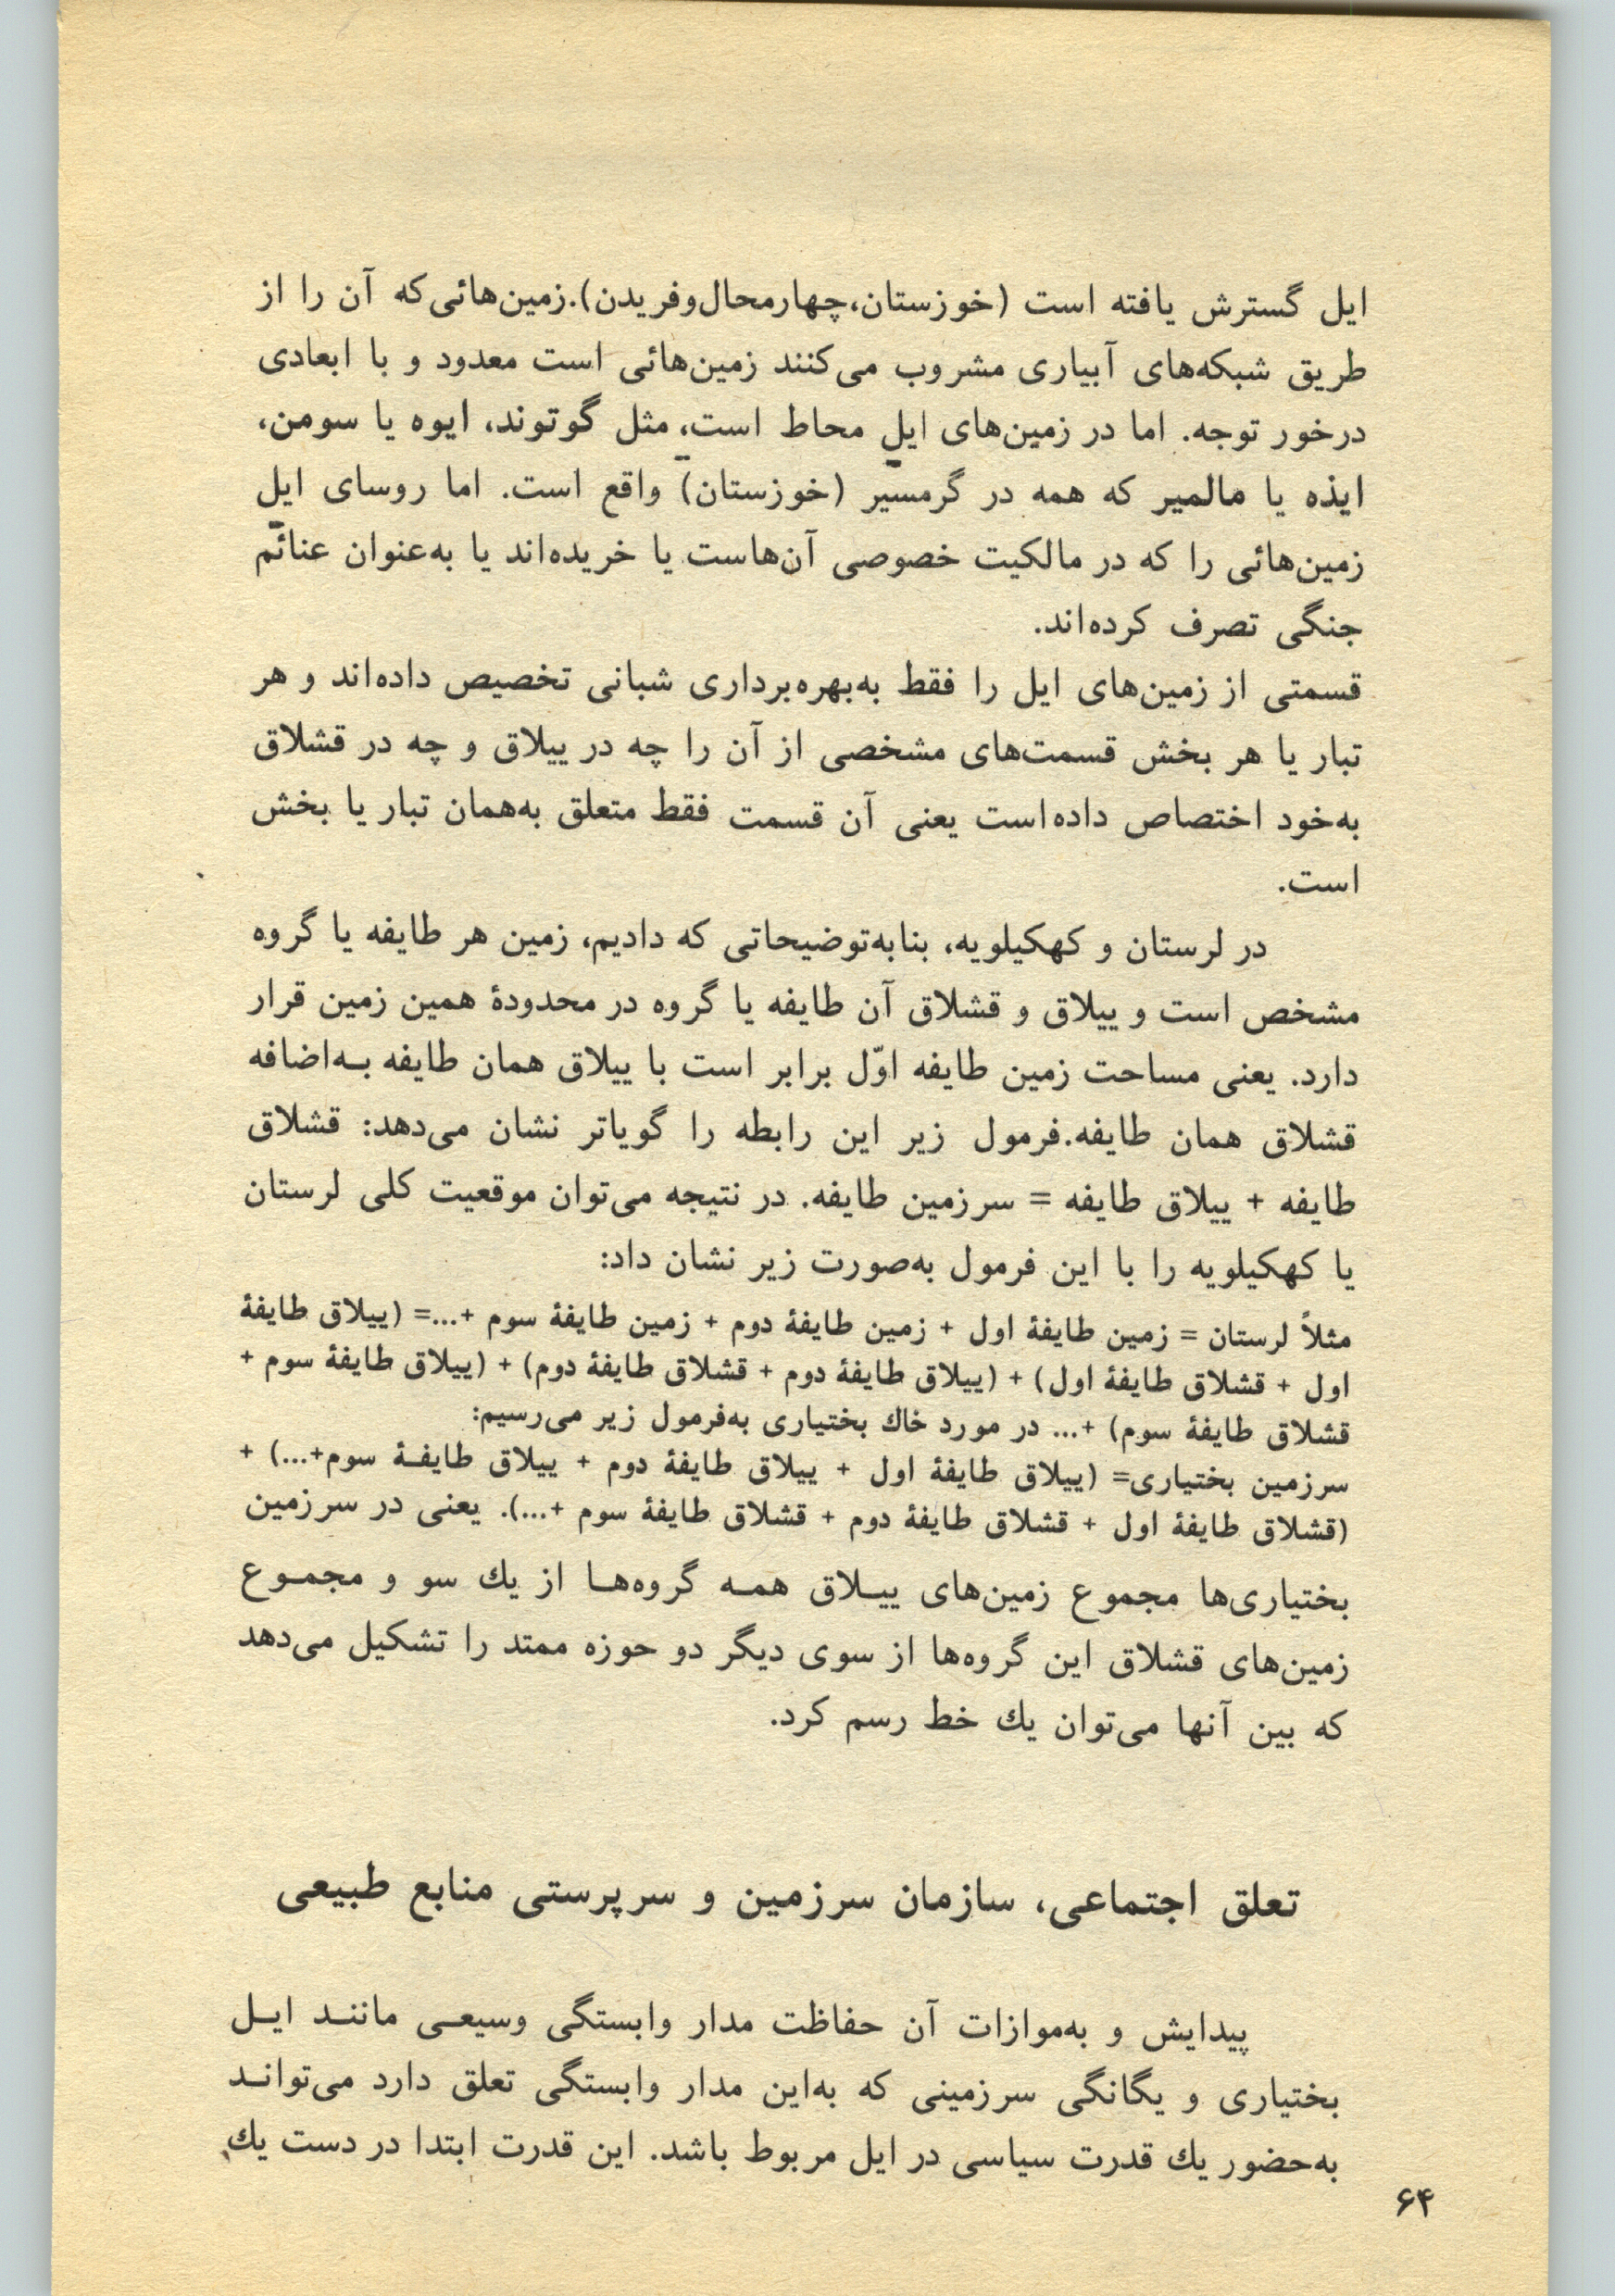 ایل گسترش یافته است (خوزستان،چهارمحال‌وفریدن).زمین‌هائی‌که آن را از
طریق شبکه‌های آبیاری مشروب می‌کنند زمین‌هائی است معدود و با ابعادی
درخور توجه. اما در زمین‌های ایل محاط است، مثل گوتوند، ایوه یا سومن،
ایذه یا مالمیر که همه در گرمسیر (خوزستان) واقع است. اما روسای ایل
زمین‌هائی را که در مالکیت خصوصی آن‌هاست یا خریده‌اند یا به‌عنوان عنائم
جنگی تصرف کرده‌اند.
قسمتی از زمین‌های ایل را فقط به‌بهره‌برداری شبانی تخصیص داده‌اند و هر
تبار یا هر بخش قسمت‌های مشخصی از آن را چه در ییلاق و چه در قشلاق
به‌خود اختصاص داده‌است یعنی آن قسمت فقط متعلق به‌همان تبار یا بخش
است.
در لرستان و کهکیلویه، بنابه‌توضیحاتی که دادیم، زمین هر طایفه یا گروه
مشخص است و ییلاق و قشلاق آن طایفه یا گروه در محدودهٔ همین زمین قرار
دارد. یعنی مساحت زمین طایفه اوّل برابر است با ییلاق همان طایفه بـه‌اضافه
قشلاق همان طایفه.فرمول زیر این رابطه را گویاتر نشان می‌دهد: قشلاق
طایفه + ییلاق طایفه = سرزمین طایفه. در نتیجه می‌توان موقعیت کلی لرستان
یا کهکیلویه را با این فرمول به‌صورت زیر نشان داد:
مثلاً لرستان = زمین طایفهٔ اول + زمین طایفهٔ دوم + زمین طایفهٔ سوم +...= (ییلاق طایفهٔ
اول + قشلاق طایفهٔ اول) + (ییلاق طایفهٔ دوم + قشلاق طایفهٔ دوم) + (ییلاق طایفهٔ سوم +
قشلاق طایفهٔ سوم) +... در مورد خاك بختیاری به‌فرمول زیر می‌رسیم:
سرزمین بختیاری= (ییلاق طایفهٔ اول + ییلاق طایفهٔ دوم + ییلاق طایفـهٔ سوم+...) +
(قشلاق طایفهٔ اول + قشلاق طایفهٔ دوم + قشلاق طایفهٔ سوم +...). یعنی در سرزمین
بختیاری‌ها مجموع زمین‌های ییـلاق همـه گروه‌هـا از یك سو و مجمـوع
زمین‌های قشلاق این گروه‌ها از سوی دیگر دو حوزه ممتد را تشکیل می‌دهد
که بین آنها می‌توان یك خط رسم کرد.
تعلق اجتماعی، سازمان سرزمین و سرپرستی منابع طبیعی
پیدایش و به‌موازات آن حفاظت مدار وابستگی وسیعـی ماننـد ایـل
بختیاری و یگانگی سرزمینی که به‌این مدار وابستگی تعلق دارد می‌توانـد
به‌حضور یك قدرت سیاسی در ایل مربوط باشد. این قدرت ابتدا در دست یك
۶۴